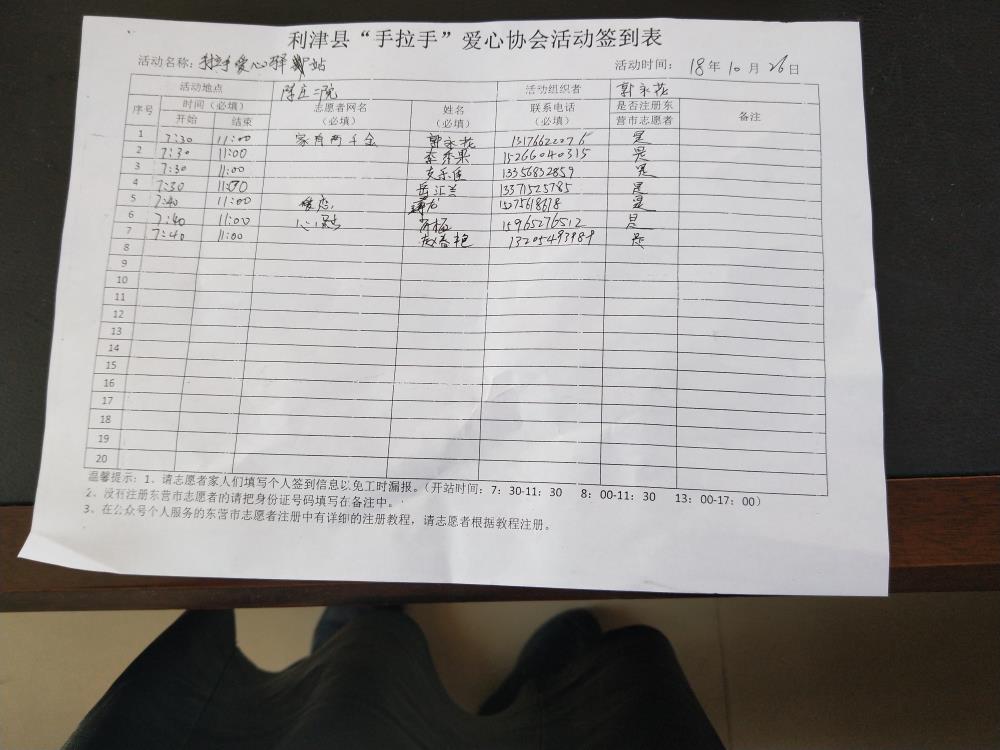 利津县“手拉手”爱心协会活动签到表
活动名称：手拉手爱心驿站 活动时间：18年10月26日
活动地点 陈庄二院 活动组织者 郭永花
序号 时间（必填） 志愿者网名（必填） 姓名（必填） 联系电话（必填） 是否注册东营市志愿者 备注
开始 结束
1 7:30 11:00 家有两千金 郭永花 13176622076 是
2 7:30 11:00 李秀果 15266040315 是
3 7:30 11:00 13356832859 是
4 7:30 11:30 岳汇兰 13371525785 是
5 7:40 11:00 是
6 7:40 11:00 15965276512 是
7 7:40 11:00 赵春艳 13205493989 是
8
9
10
11
12
13
14
15
16
17
18
19
20
温馨提示：1、请志愿者家人们填写个人签到信息以免工时漏报。（开站时间：7：30-11：30 8：00-11：30 13：00-17：00）
2、没有注册东营市志愿者的请把身份证号码填写在备注中。
3、在公众号个人服务的东营市志愿者注册中有详细的注册教程，请志愿者根据教程注册。